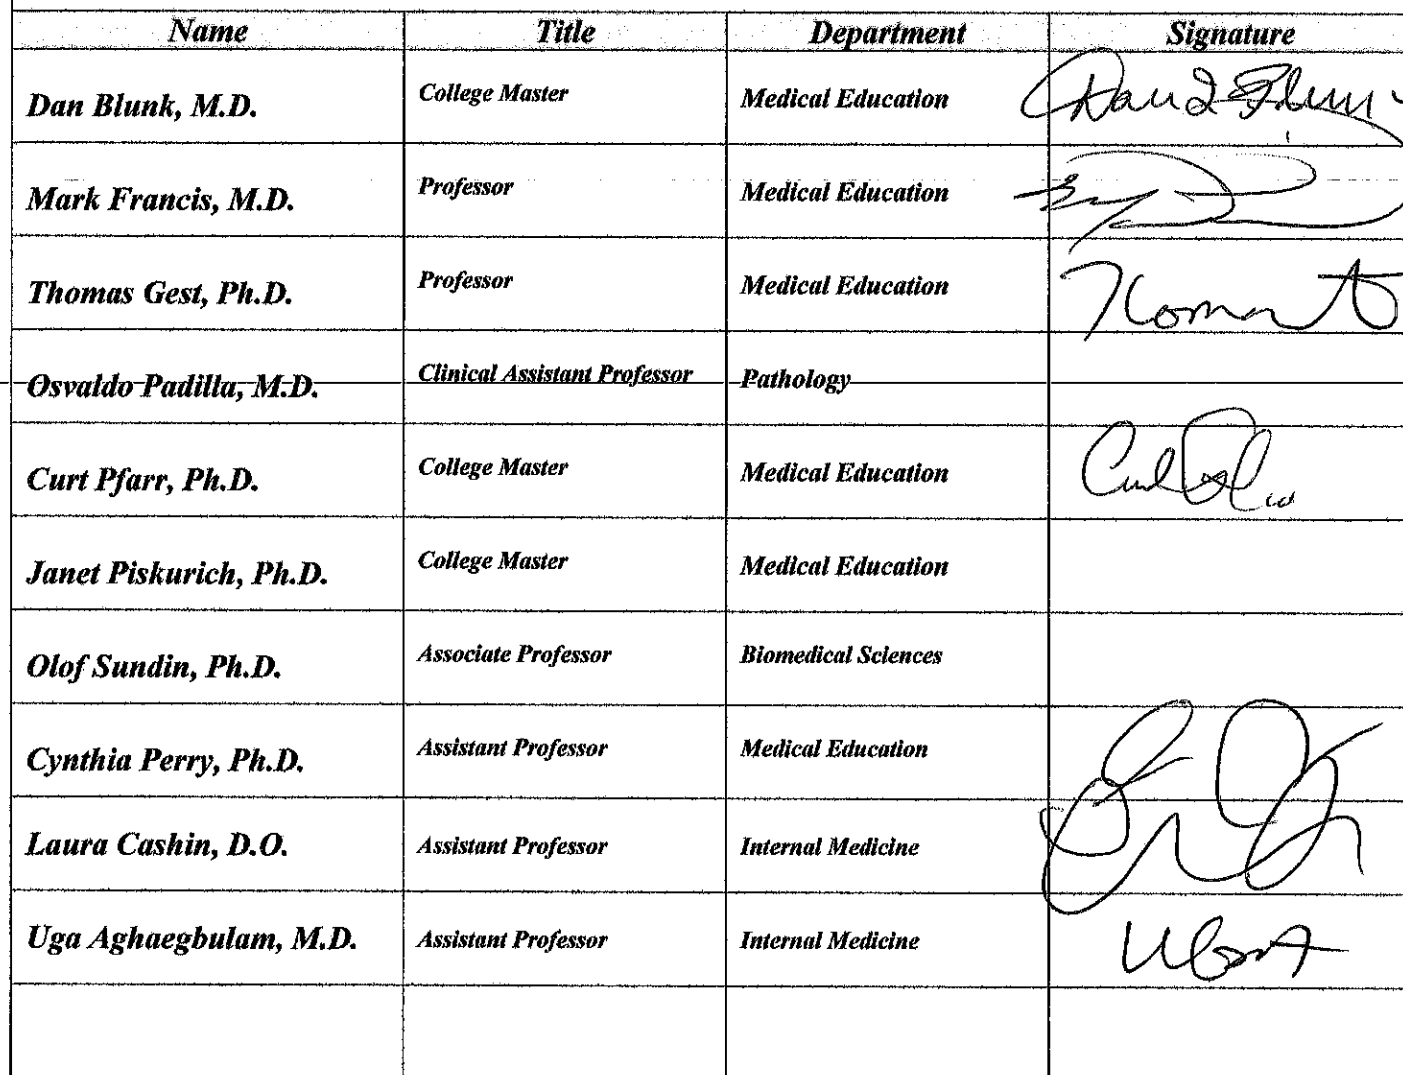 Name Title Department Signature
Dan Blunk, M.D. College Master Medical Education
Mark Francis, M.D. Professor Medical Education
Thomas Gest, Ph.D. Professor Medical Education
Osvaldo Padilla, M.D. Clinical Assistant Professor Pathology
Curt Pfarr, Ph.D. College Master Medical Education
Janet Piskurich, Ph.D. College Master Medical Education
Olof Sundin, Ph.D. Associate Professor Biomedical Sciences
Cynthia Perry, Ph.D. Assistant Professor Medical Education
Laura Cashin, D.O. Assistant Professor Internal Medicine
Uga Aghaegbulam, M.D. Assistant Professor Internal Medicine